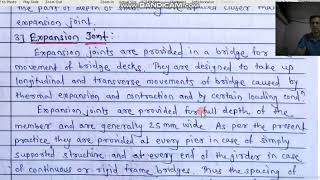 BANDICAM
expansion joint.
3) Expansion Joint:
Expansion joints are provided in a bridge for
movement of bridge decks. They are designed to take up
longitudinal and transverse movements of bridge caused by
thermal expansion and contraction and by certain loading condⁿ
Expansion joints are provided for full depth of the
member and are generally 25 mm wide. As per the present
practice they are provided at every pier in case of simply
supported structure and at every end of the girder in case
of continuous or rigid frame bridges. Thus the spacing of